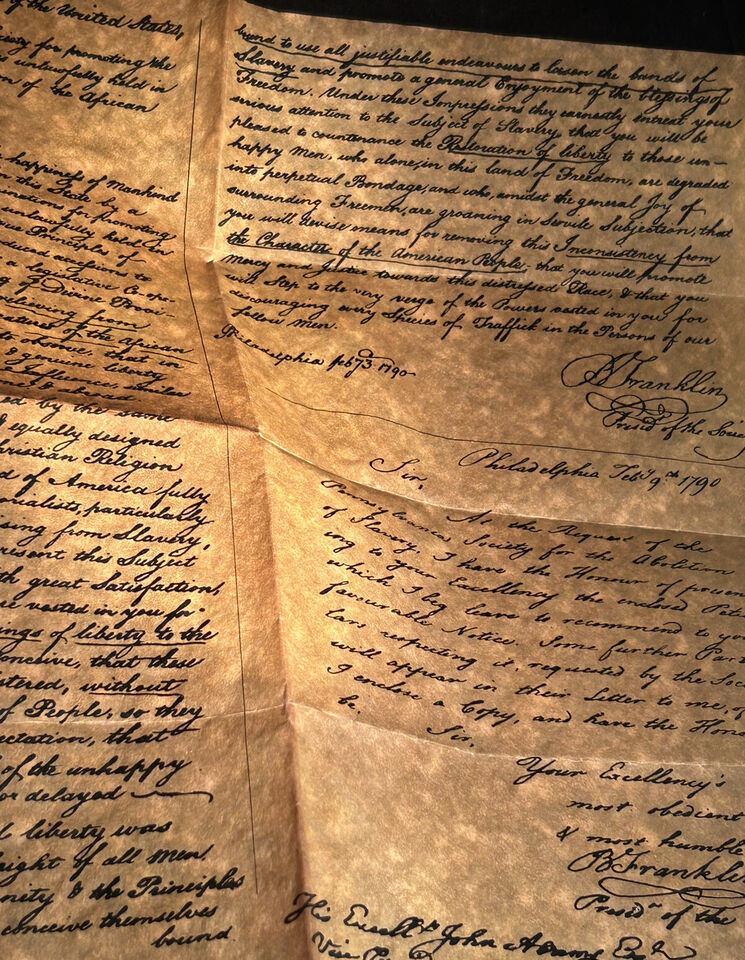 of the United States,
for promoting the
unlawfully held in
of the African
happiness of Mankind
this State by a
for promoting
unlawfully held in
Principles of
accessions to
a legislative Co-ope-
of Divine Provi-
relieving from
of the African
to observe, that in
& genuine liberty
by the same
equally designed
Christian Religion
of America fully
particularly
from Slavery,
present this Subject
great Satisfaction,
are vested in you for
of liberty to the
conceive, that these
without
of People, so they
that
of the unhappy
or delayed
liberty was
of all Men.
& the Principles
conceive themselves
bound
bound to use all justifiable endeavours to loosen the bands of
Slavery and promote a general Enjoyment of the blessings of
Freedom. Under these Impressions they earnestly intreat your
serious attention to the Subject of Slavery, that you will be
pleased to countenance the Restoration of liberty to those un-
happy Men, who alone, in this land of Freedom, are degraded
into perpetual Bondage, and who, amidst the general Joy of
surrounding Freemen, are groaning in Servile Subjection, that
you will devise means for removing this Inconsistency from
the Character of the American People, that you will promote
Mercy and Justice towards this distressed Race, & that you
will Step to the very verge of the Powers vested in you for
discouraging every Species of Traffick in the Persons of our
fellow Men.
Philadelphia feby 3d 1790
B Franklin
Presidt of the Society
Philadelphia Feby 9th 1790
Sir,
At the Request of the
Pennsylvania Society for the Abolition
of Slavery, I have the Honour of presen
ing to your Excellency the enclosed Peti
which I beg leave to recommend to yo
favourable Notice. Some further Part
lars respecting it, requested by the Soc
will appear in their Letter to me, of
I enclose a Copy, and have the Hono
be. Sir,
Your Excellency's
most obedient
& most humble
B Frankli
Presidt of the
His Excelly John Adams Esqr
Vice